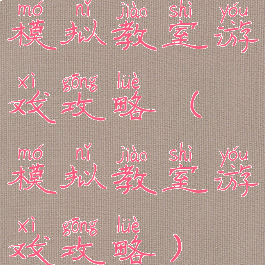 mó nǐ jiào shì yóu
模拟教室游
xì gōng lüè
戏攻略（
mó nǐ jiào shì yóu
模拟教室游
xì gōng lüè
戏攻略）